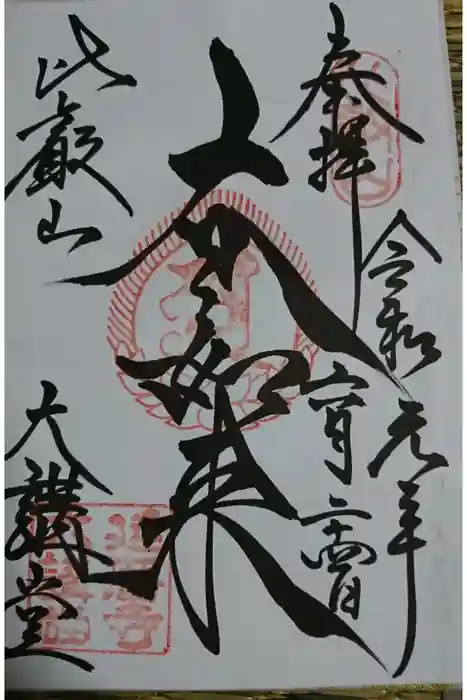 奉拝
令和元年
六月二十四日
大日如来
比叡山
大講堂